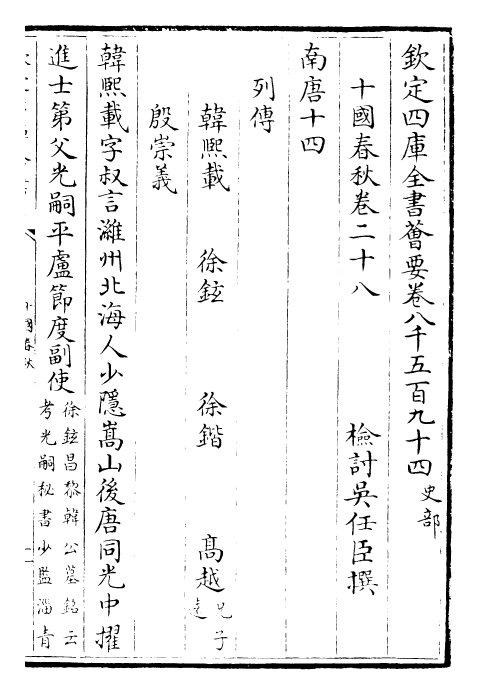 欽定四庫全書薈要卷八千五百九十四 史部
十國春秋卷二十八
檢討吳任臣撰
南唐十四
列傳
韓熙載 徐鉉 徐鍇 高越 兄子
殷崇義
韓熙載字叔言濰州北海人少隱嵩山後唐同光中擢
進士第父光嗣平盧節度副使 徐鉉昌黎韓公墓銘云
考光嗣秘書少監淄青
十國春秋